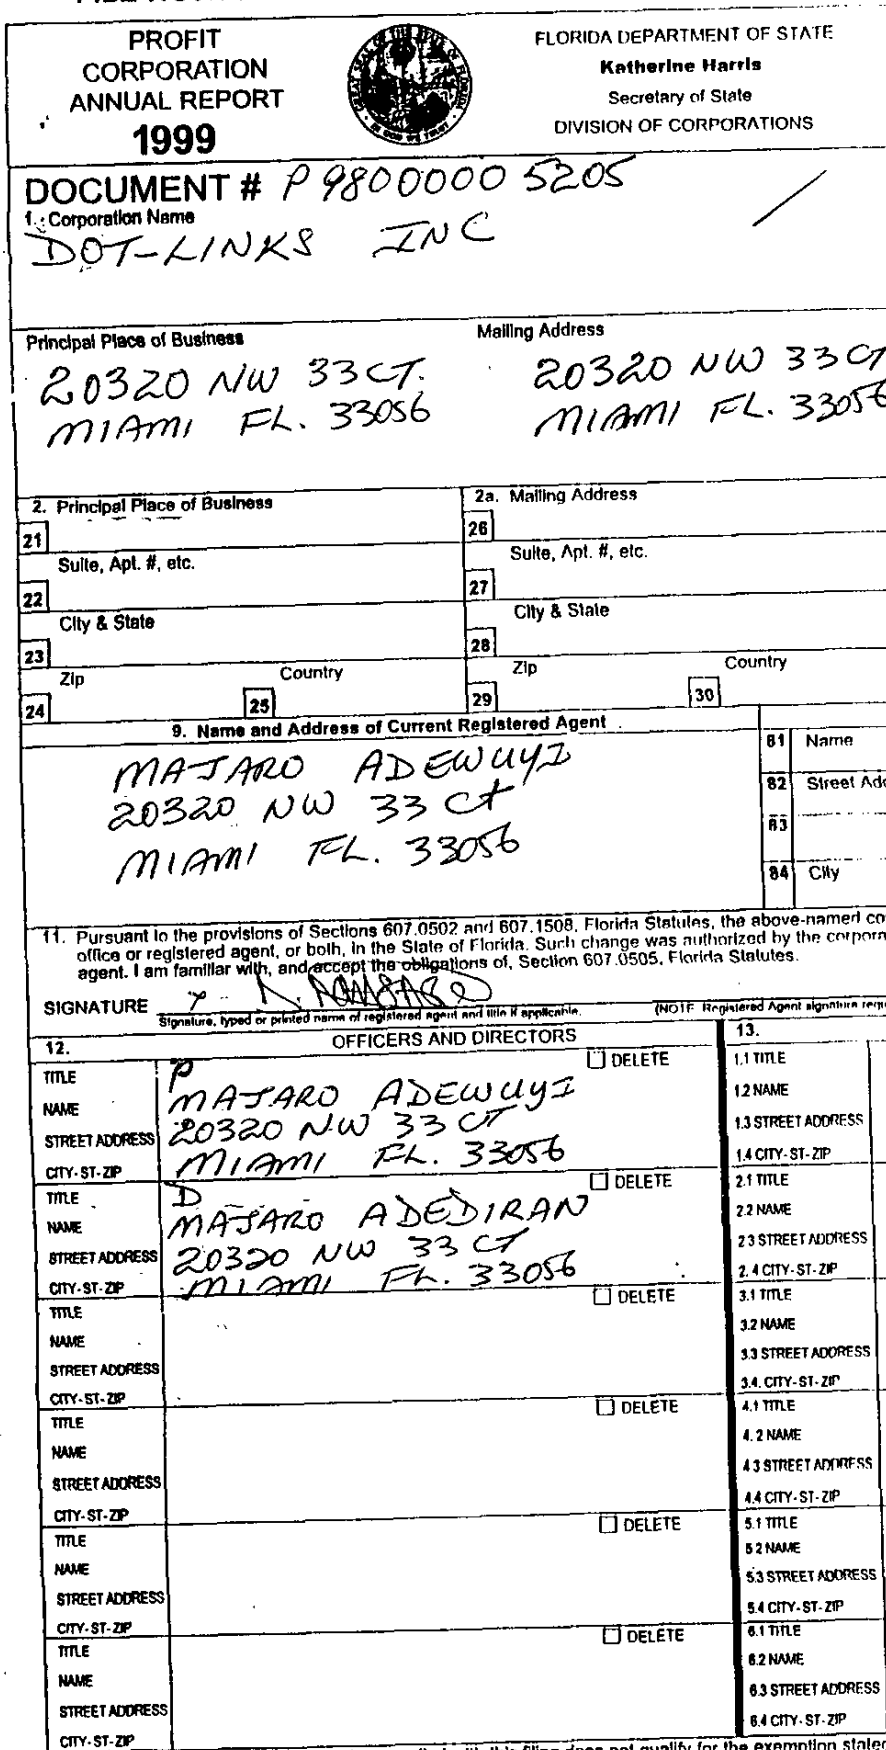 PROFIT
CORPORATION
ANNUAL REPORT
1999
FLORIDA DEPARTMENT OF STATE
Katherine Harris
Secretary of State
DIVISION OF CORPORATIONS
DOCUMENT # P98000005205
1. Corporation Name
DOT-LINKS INC
Principal Place of Business
20320 NW 33 CT.
MIAMI FL. 33056
Mailing Address
20320 NW 33 CT
MIAMI FL. 33056
2. Principal Place of Business
2a. Mailing Address
21
26
Suite, Apt. #, etc.
Suite, Apt. #, etc.
22
27
City & State
City & State
23
28
Zip
Country
Zip
Country
24
25
29
30
9. Name and Address of Current Registered Agent
MAJARO ADEWUYI
20320 NW 33 CT
MIAMI FL. 33056
81 Name
82 Street Add
83
84 City
11. Pursuant to the provisions of Sections 607.0502 and 607.1508, Florida Statutes, the above-named co
office or registered agent, or both, in the State of Florida. Such change was authorized by the corpora
agent. I am familiar with, and accept the obligations of, Section 607.0505, Florida Statutes.
SIGNATURE
Signature, typed or printed name of registered agent and title if applicable.
(NOTE Registered Agent signature requ
12. OFFICERS AND DIRECTORS
13.
TITLE P DELETE
NAME MAJARO ADEWUYI
STREET ADDRESS 20320 NW 33 CT
CITY-ST-ZIP MIAMI FL. 33056
1.1 TITLE
1.2 NAME
1.3 STREET ADDRESS
1.4 CITY-ST-ZIP
TITLE D DELETE
NAME MAJARO ADEDIRAN
STREET ADDRESS 20320 NW 33 CT
CITY-ST-ZIP MIAMI FL. 33056
2.1 TITLE
2.2 NAME
2.3 STREET ADDRESS
2.4 CITY-ST-ZIP
TITLE DELETE
NAME
STREET ADDRESS
CITY-ST-ZIP
3.1 TITLE
3.2 NAME
3.3 STREET ADDRESS
3.4. CITY-ST-ZIP
TITLE DELETE
NAME
STREET ADDRESS
CITY-ST-ZIP
4.1 TITLE
4.2 NAME
4.3 STREET ADDRESS
4.4 CITY-ST-ZIP
TITLE DELETE
NAME
STREET ADDRESS
CITY-ST-ZIP
5.1 TITLE
5.2 NAME
5.3 STREET ADDRESS
5.4 CITY-ST-ZIP
TITLE DELETE
NAME
STREET ADDRESS
CITY-ST-ZIP
6.1 TITLE
6.2 NAME
6.3 STREET ADDRESS
6.4 CITY-ST-ZIP
this filing does not qualify for the exemption stated